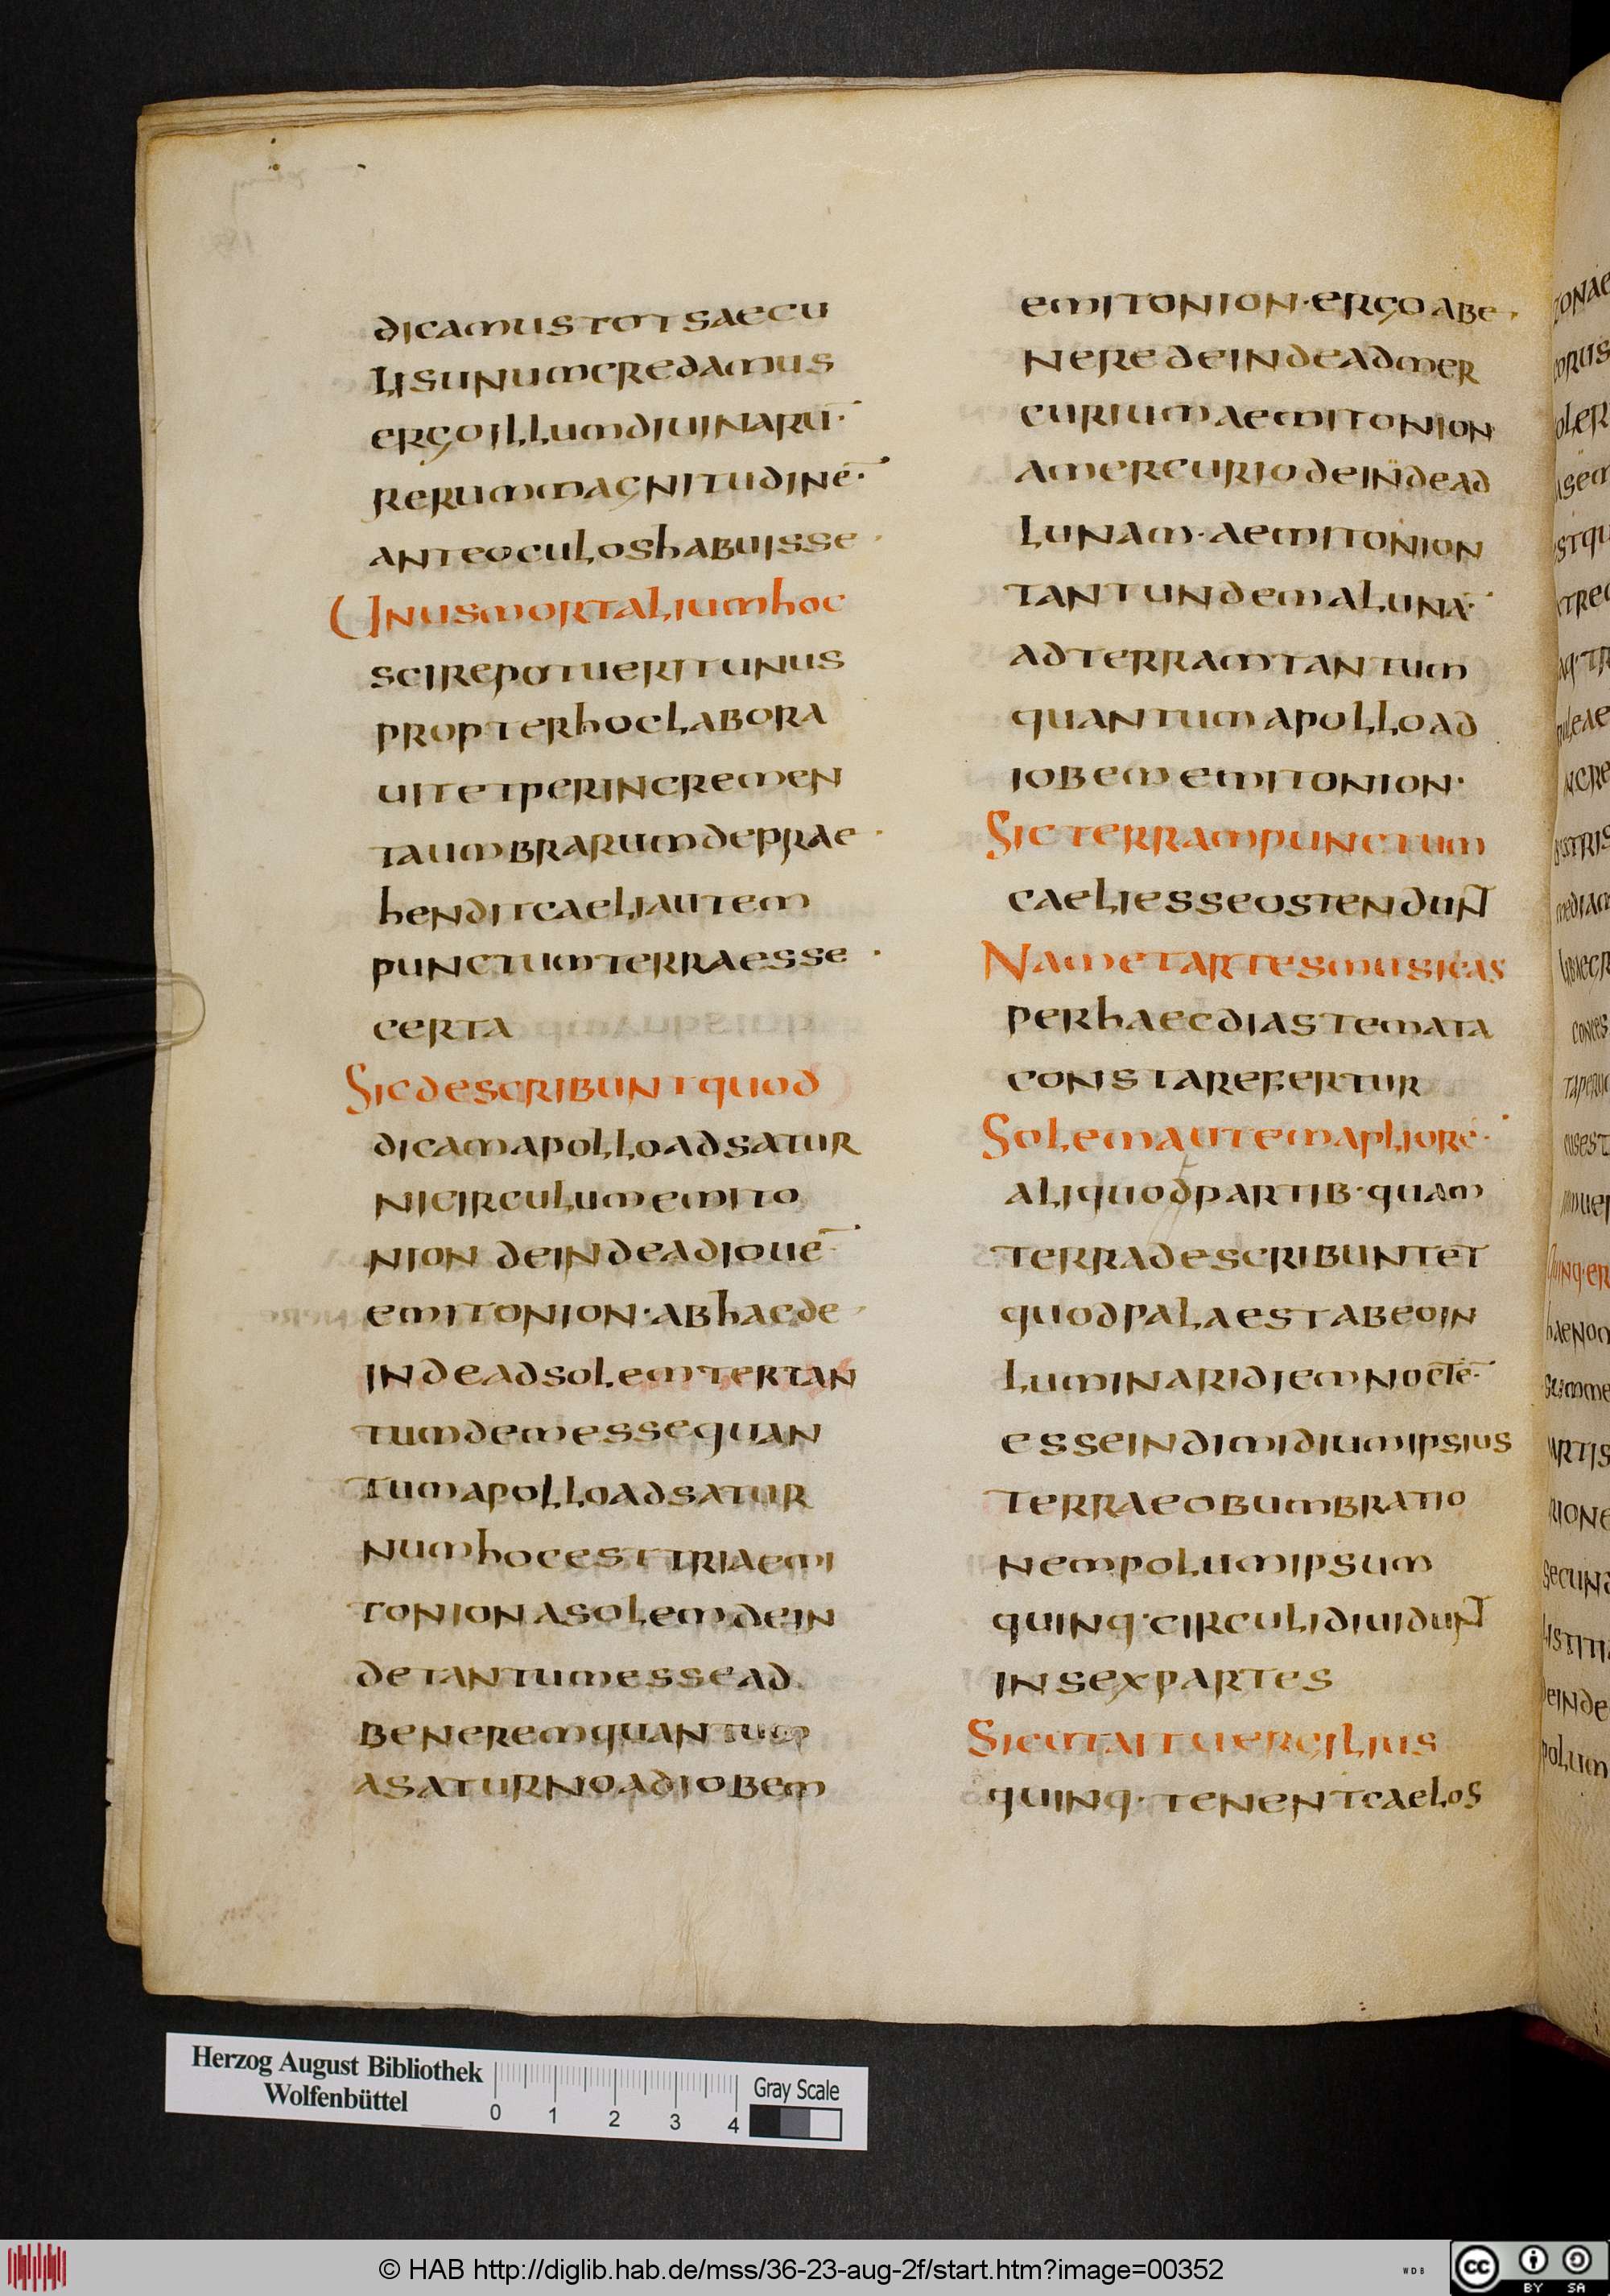 dicamus tot saecu
lis unum credamus
ergo illum diuinarū·
rerum magnitudinē·
ante oculos habuisse
Unus mortalium hoc
scire potuerit unus
propter hoc labora
uit et per incremen
ta umbrarum deprae
hendit caeli autem
punctum terra esse
certa
Sic describunt quod
dicam apollo ad satur
ni circulum emito
nion deinde ad iouē
emitonion· ab hac de
inde ad solem tertan
tumdem esse quan
tum apollo ad satur
num hoc est triaemi
tonion a solem dein
de tantum esse ad
benerem quantum
a saturno ad iobem
emitonion· ergo a be
nere deinde ad mer
curium aemitonion
a mercurio deinde ad
lunam· aemitonion
tantundem a luna·
ad terram tantum
quantum apollo ad
iobem emitonion·
Sic terram punctum
caeli esse ostendunt
Nam et artes musicas
per haec diastemata
constare fertur
Solem autem apliorē·
aliquod partib· quam
terra describunt et
quod pala est ab eo in
luminari diem noctē·
esse in dimidium ipsius
terrae obumbratio
nem polum ipsum
quinq· circuli diuidunt
in sex partes
Sicut ait uergilius
quinq· tenent caelos
Herzog August Bibliothek
Wolfenbüttel
0 1 2 3 4
Gray Scale
© HAB http://diglib.hab.de/mss/36-23-aug-2f/start.htm?image=00352
WDB
cc BY SA